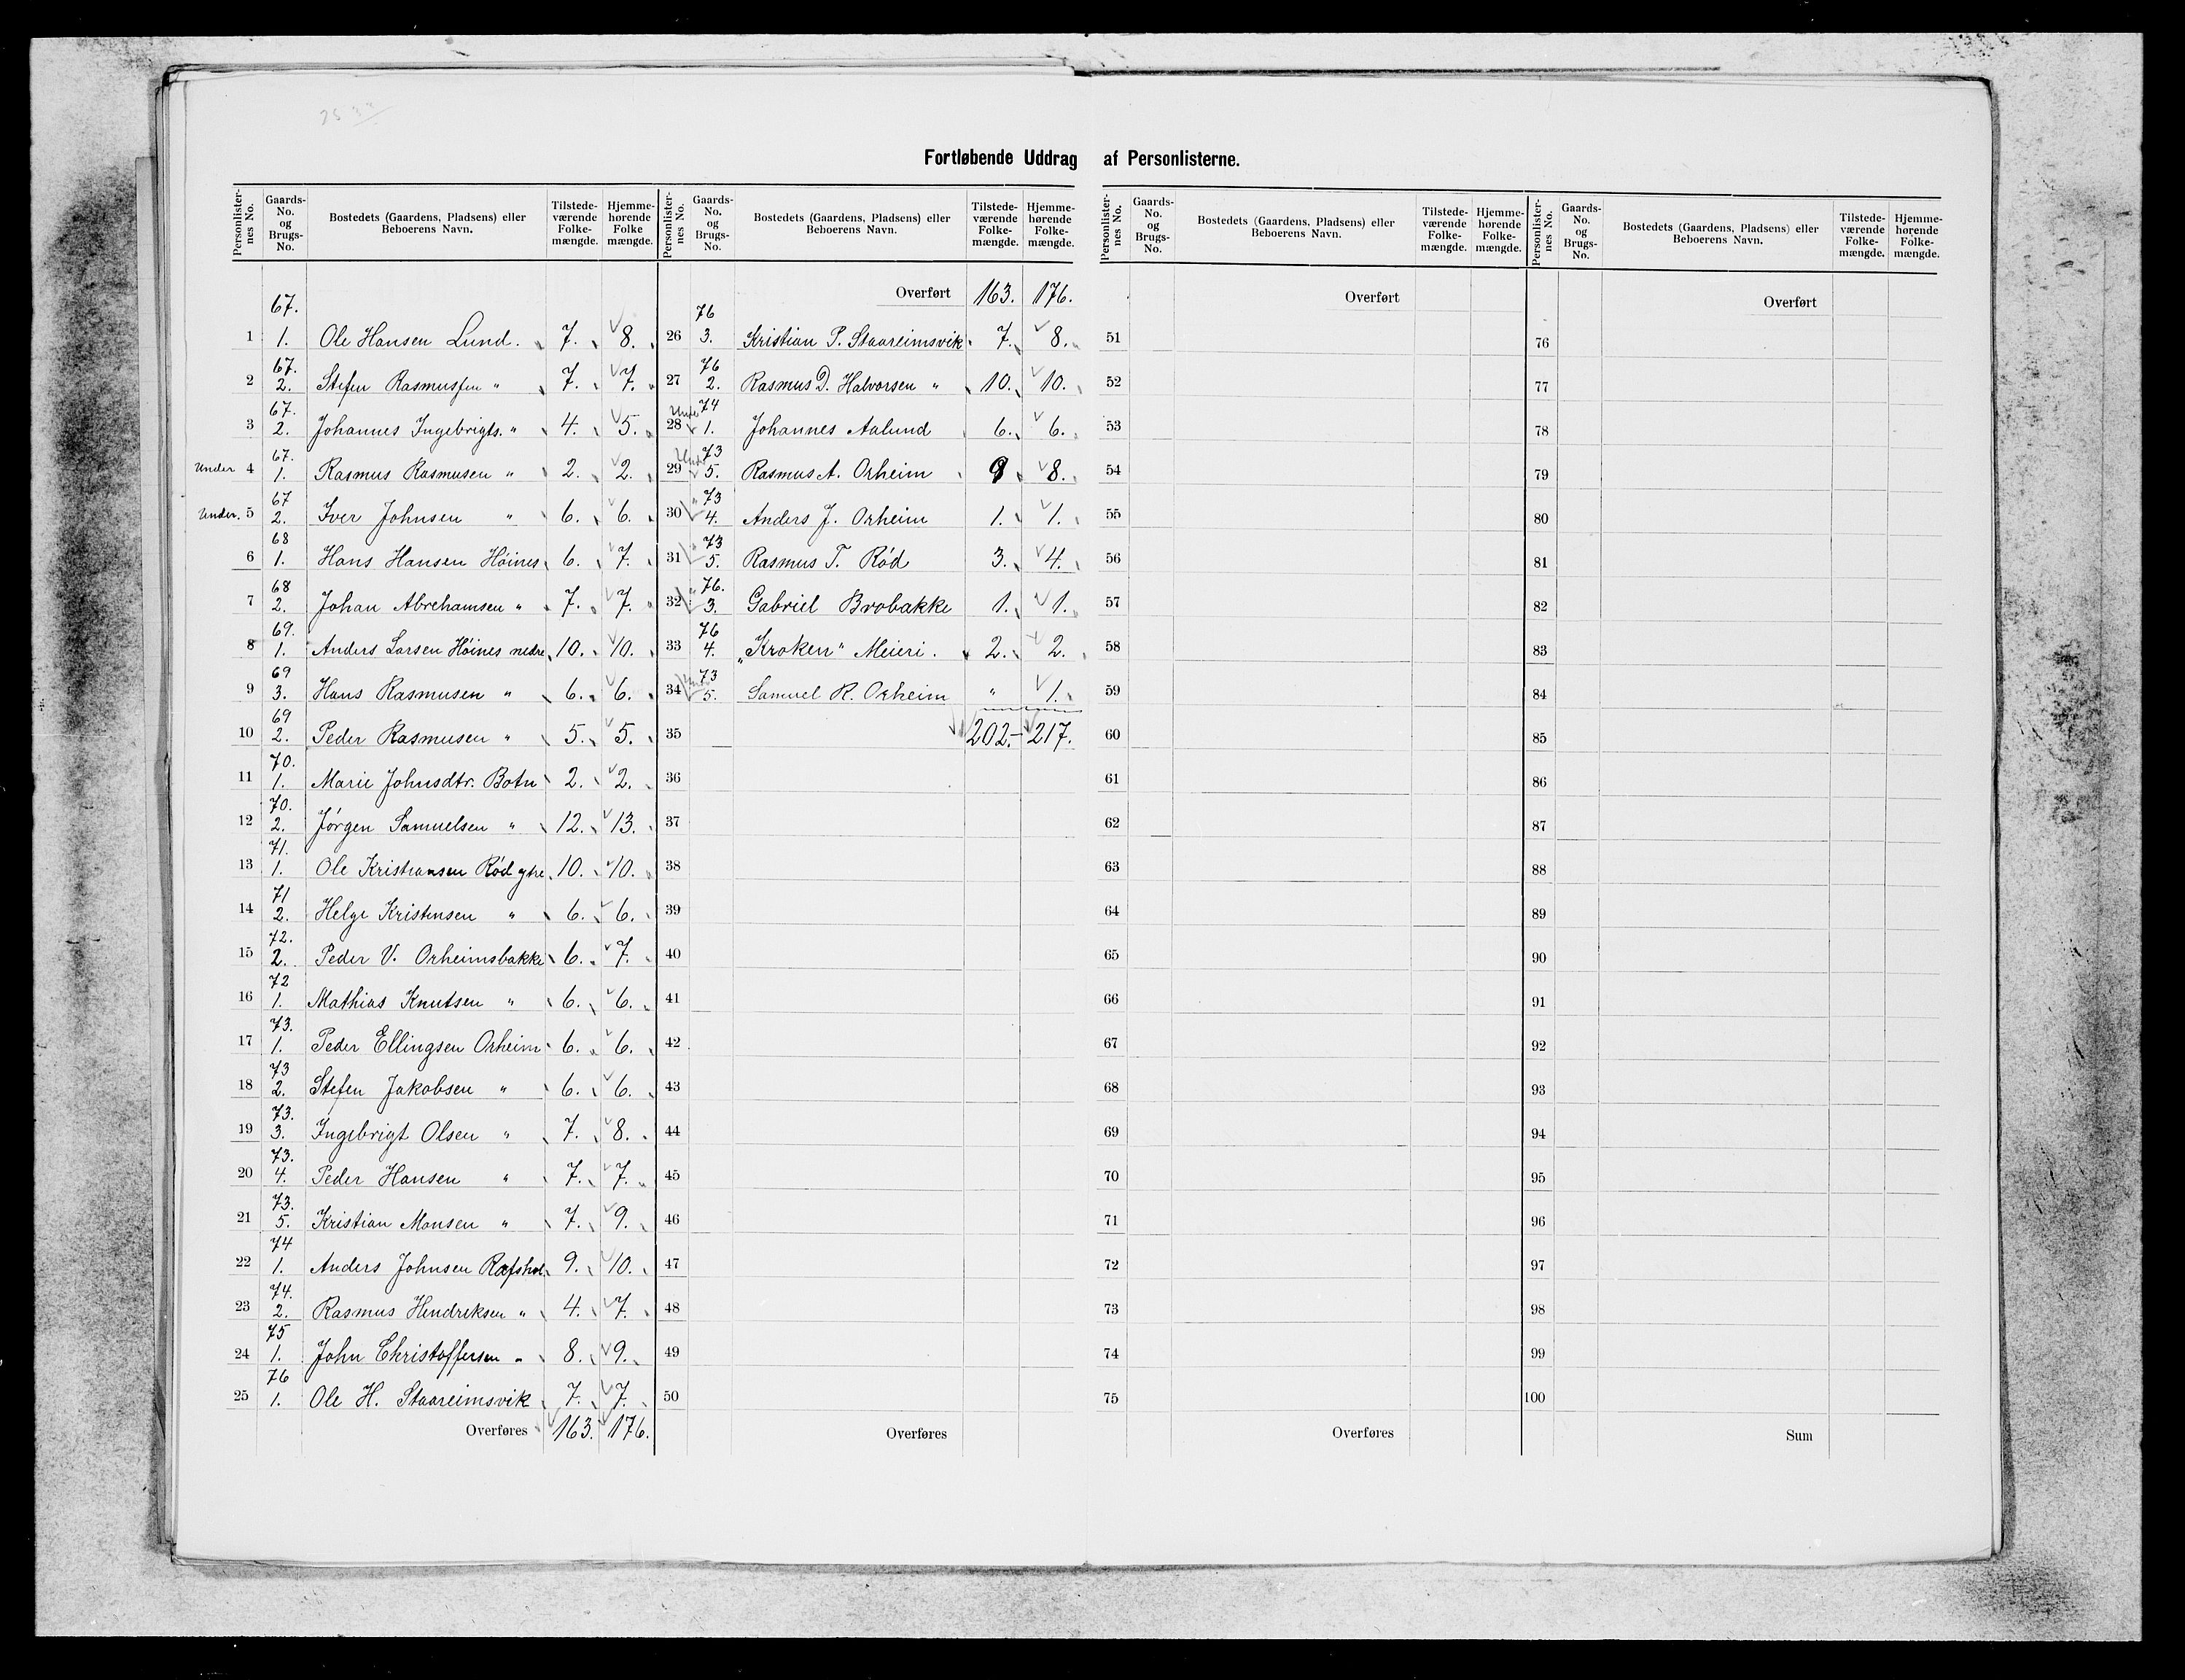 Fortløbende Uddrag af Personlisterne.
Personlister-nes No. | Gaards-No. og Brugs-No. | Bostedets (Gaardens, Pladsens) eller Beboerens Navn. | Tilstede-værende Folke-mængde. | Hjemme-hørende Folke mængde.
1 | 67. 1. | Ole Hansen Lund. | 7. | 8.
2 | 67. 2. | Stefen Rasmussen " | 7. | 7.
3 | 67. 2. | Johannes Ingebrigts. " | 4. | 5.
Under 4 | 67. 1. | Rasmus Rasmusen " | 2. | 2.
Under. 5 | 67 2. | Iver Johnsen " | 6. | 6.
6 | 68 1. | Hans Hansen Höines | 6. | 7.
7 | 68 2. | Johan Abrehamsen " | 7. | 7.
8 | 69. 1. | Anders Larsen Höines nedre | 10. | 10.
9 | 69 3. | Hans Rasmusen " | 6. | 6.
10 | 69 2. | Peder Rasmusen " | 5. | 5.
11 | 70. 1. | Marie Johnsdtr. Botn | 2. | 2.
12 | 70. 2. | Jørgen Samuelsen " | 12. | 13.
13 | 71. 1. | Ole Kristiansen Röd ytre | 10. | 10.
14 | 71 2. | Helge Kristensen " | 6. | 6.
15 | 72. 2. | Peder V. Orheimsbakke | 6. | 7.
16 | 72 1. | Mathias Knutsen " | 6. | 6.
17 | 73. 1. | Peder Ellingsen Orheim | 6. | 6.
18 | 73 2. | Stefen Jakobsen " | 6. | 6.
19 | 73. 3. | Ingebrigt Olsen " | 7. | 8.
20 | 73. 4. | Peder Hansen " | 7. | 7.
21 | 73. 5. | Kristian Monsen " | 7. | 9.
22 | 74 1. | Anders Johnsen | 9. | 10.
23 | 74. 2. | Rasmus Hendreksen " | 4. | 7.
24 | 75 1. | John Christoffersen " | 8. | 9.
25 | 76 1. | Ole H. Staareimsvik | 7. | 7.
Overføres | 163. | 176.
Personlister-nes No. | Gaards-No. og Brugs-No. | Bostedets (Gaardens, Pladsens) eller Beboerens Navn. | Tilstede-værende Folke-mængde. | Hjemme-hørende Folke-mængde.
Overført | 163. | 176.
26 | 76 3. | Kristian P. Staareimsvik | 7. | 8.
27 | 76 2. | Rasmus D. Halvorsen " | 10. | 10.
28 | Under 74 1. | Johannes Aalund | 6. | 6.
29 | Under 73 5. | Rasmus A. Orheim | 9 | 8.
30 | " 73 4. | Anders J. Orheim | 1. | 1.
31 | " 73 5. | Rasmus T. Röd | 3. | 4.
32 | " 76. 3. | Gabriel Brobakke | 1. | 1.
33 | 76 4. | "Kroken" Meieri. | 2. | 2.
34 | Under 73 5. | Samuel R. Orheim | " | 1.
35 | 202. - 217.
36
37
38
39
40
41
42
43
44
45
46
47
48
49
50
Overføres
Personlister-nes No. | Gaards-No. og Brugs-No. | Bostedets (Gaardens, Pladsens) eller Beboerens Navn. | Tilstede-værende Folke-mængde. | Hjemme-hørende Folke-mængde.
Overført
51
52
53
54
55
56
57
58
59
60
61
62
63
64
65
66
67
68
69
70
71
72
73
74
75
Overføres
Personlister-nes No. | Gaards-No. og Brugs-No. | Bostedets (Gaardens, Pladsens) eller Beboerens Navn. | Tilstede-værende Folke-mængde. | Hjemme-hørende Folke-mængde.
Overført
76
77
78
79
80
81
82
83
84
85
86
87
88
89
90
91
92
93
94
95
96
97
98
99
100
Sum